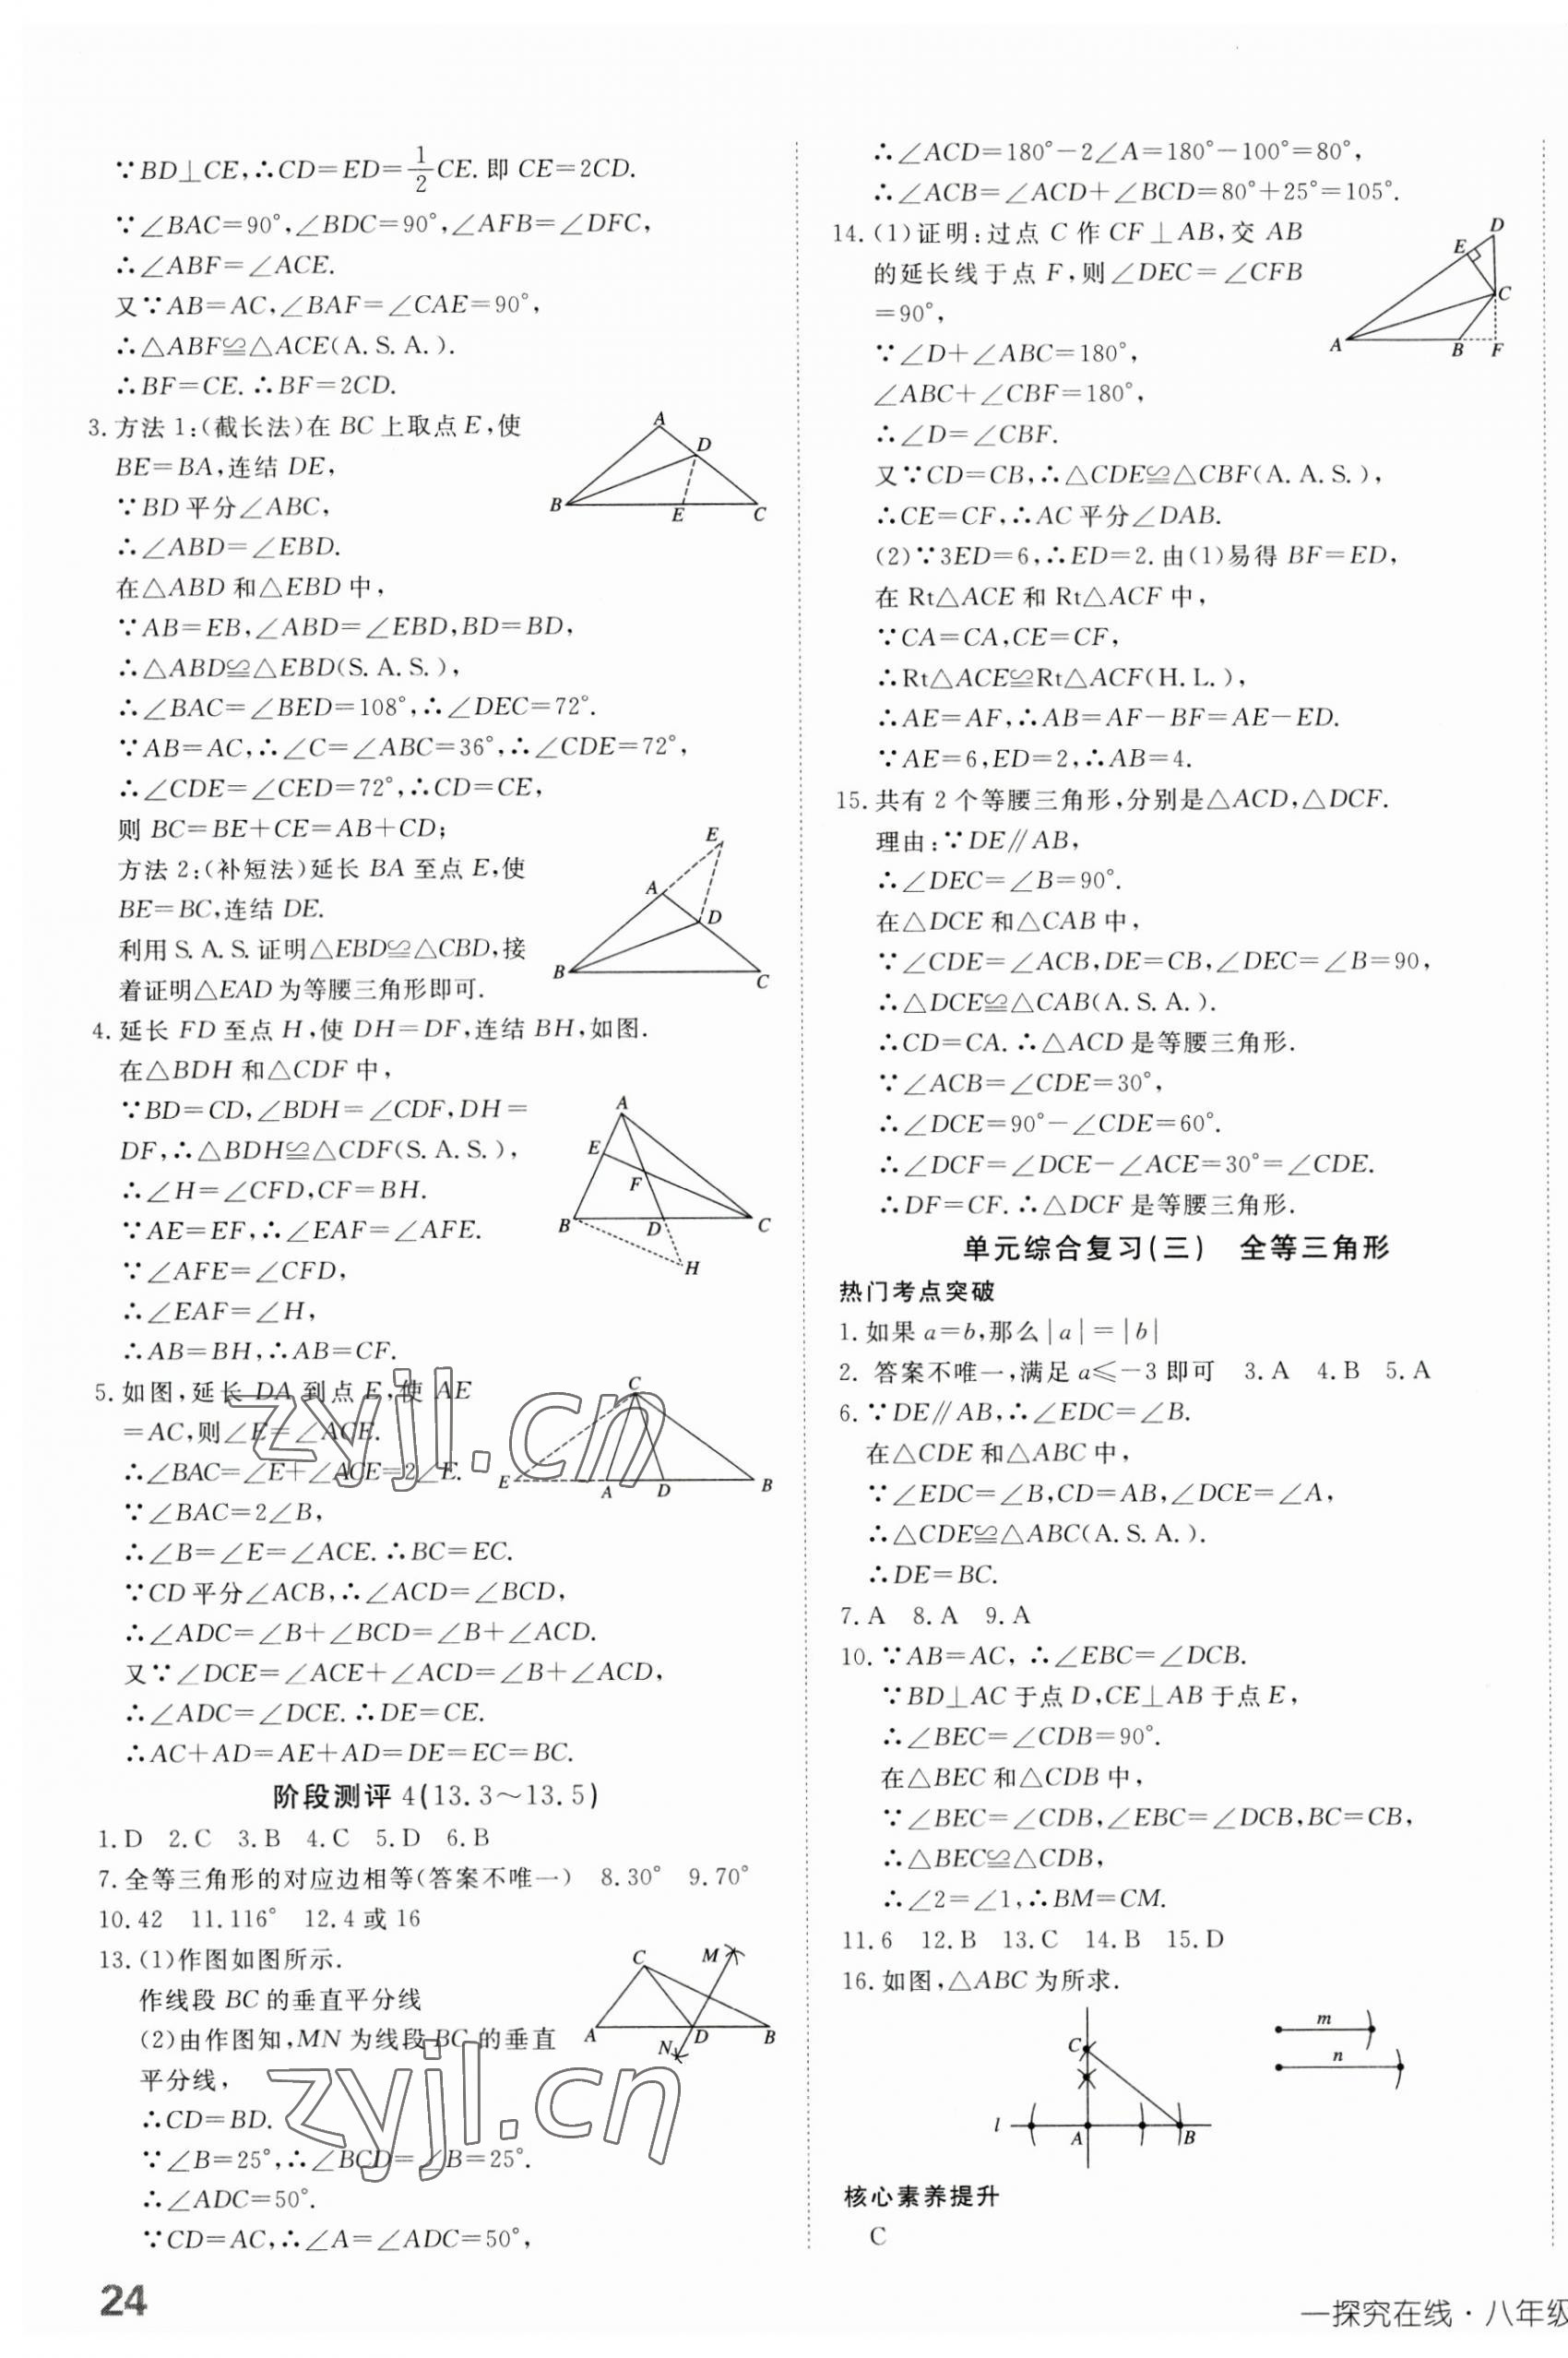 ∵BD⊥CE,∴CD=ED=1/2CE.即 CE=2CD.
∵∠BAC=90°,∠BDC=90°,∠AFB=∠DFC,
∴∠ABF=∠ACE.
又∵AB=AC,∠BAF=∠CAE=90°,
∴△ABF≌△ACE(A.S.A.).
∴BF=CE.∴BF=2CD.
3.方法1:(截长法)在 BC 上取点 E,使
BE=BA,连结 DE,
∵BD 平分∠ABC,
∴∠ABD=∠EBD.
在△ABD 和△EBD 中,
∵AB=EB,∠ABD=∠EBD,BD=BD,
∴△ABD≌△EBD(S.A.S.),
∴∠BAC=∠BED=108°,∴∠DEC=72°.
∵AB=AC,∴∠C=∠ABC=36°,∴∠CDE=72°,
∴∠CDE=∠CED=72°,∴CD=CE,
则 BC=BE+CE=AB+CD;
方法2:(补短法)延长 BA 至点 E,使
BE=BC,连结 DE.
利用 S.A.S.证明△EBD≌△CBD,接
着证明△EAD 为等腰三角形即可.
A
D
B
E
C
E
A
D
B
C
4.延长 FD 至点 H,使 DH=DF,连结 BH,如图.
在△BDH 和△CDF 中,
∵BD=CD,∠BDH=∠CDF,DH=
DF,∴△BDH≌△CDF(S.A.S.),
∴∠H=∠CFD,CF=BH.
∵AE=EF,∴∠EAF=∠AFE.
∵∠AFE=∠CFD,
∴∠EAF=∠H,
∴AB=BH,∴AB=CF.
A
E
F
B
D
C
H
5.如图,延长 DA 到点 E,使 AE
=AC,则∠E=∠ACE.
∴∠BAC=∠E+∠ACE=2∠E.
∵∠BAC=2∠B,
∴∠B=∠E=∠ACE.∴BC=EC.
∵CD 平分∠ACB,∴∠ACD=∠BCD,
∴∠ADC=∠B+∠BCD=∠B+∠ACD.
又∵∠DCE=∠ACE+∠ACD=∠B+∠ACD,
∴∠ADC=∠DCE.∴DE=CE.
∴AC+AD=AE+AD=DE=EC=BC.
C
E
A
D
B
zyjl.cn
阶段测评 4(13.3～13.5)
1.D 2.C 3.B 4.C 5.D 6.B
7.全等三角形的对应边相等(答案不唯一) 8.30° 9.70°
10.42 11.116° 12.4 或 16
13.(1)作图如图所示.
作线段 BC 的垂直平分线
(2)由作图知,MN 为线段 BC 的垂直
平分线,
∴CD=BD.
∵∠B=25°,∴∠BCD=∠B=25°.
∴∠ADC=50°.
∵CD=AC,∴∠A=∠ADC=50°,
C
M
A
D
B
N
zyjl.cn
24
∴∠ACD=180°-2∠A=180°-100°=80°,
∴∠ACB=∠ACD+∠BCD=80°+25°=105°.
14.(1)证明:过点 C 作 CF⊥AB,交 AB
的延长线于点 F,则∠DEC=∠CFB
=90°,
∵∠D+∠ABC=180°,
∠ABC+∠CBF=180°,
∴∠D=∠CBF.
又∵CD=CB,∴△CDE≌△CBF(A.A.S.),
∴CE=CF,∴AC 平分∠DAB.
(2)∵3ED=6,∴ED=2.由(1)易得 BF=ED,
在 Rt△ACE 和 Rt△ACF 中,
∵CA=CA,CE=CF,
∴Rt△ACE≌Rt△ACF(H.L.),
∴AE=AF,∴AB=AF-BF=AE-ED.
∵AE=6,ED=2,∴AB=4.
D
E
C
A
B
F
15.共有 2 个等腰三角形,分别是△ACD,△DCF.
理由:∵DE∥AB,
∴∠DEC=∠B=90°.
在△DCE 和△CAB 中,
∵∠CDE=∠ACB,DE=CB,∠DEC=∠B=90,
∴△DCE≌△CAB(A.S.A.).
∴CD=CA.∴△ACD 是等腰三角形.
∵∠ACB=∠CDE=30°,
∴∠DCE=90°-∠CDE=60°.
∴∠DCF=∠DCE-∠ACE=30°=∠CDE.
∴DF=CF.∴△DCF 是等腰三角形.
单元综合复习(三) 全等三角形
热门考点突破
1.如果 a=b,那么|a|=|b|
2. 答案不唯一,满足 a≤-3 即可 3.A 4.B 5.A
6.∵DE∥AB,∴∠EDC=∠B.
在△CDE 和△ABC 中,
∵∠EDC=∠B,CD=AB,∠DCE=∠A,
∴△CDE≌△ABC(A.S.A.).
∴DE=BC.
7.A 8.A 9.A
10.∵AB=AC, ∴∠EBC=∠DCB.
∵BD⊥AC 于点 D,CE⊥AB 于点 E,
∴∠BEC=∠CDB=90°.
在△BEC 和△CDB 中,
∵∠BEC=∠CDB,∠EBC=∠DCB,BC=CB,
∴△BEC≌△CDB,
∴∠2=∠1,∴BM=CM.
11.6 12.B 13.C 14.B 15.D
16.如图,△ABC 为所求.
C
l
A
B
m
n
核心素养提升
C
一探究在线·八年级